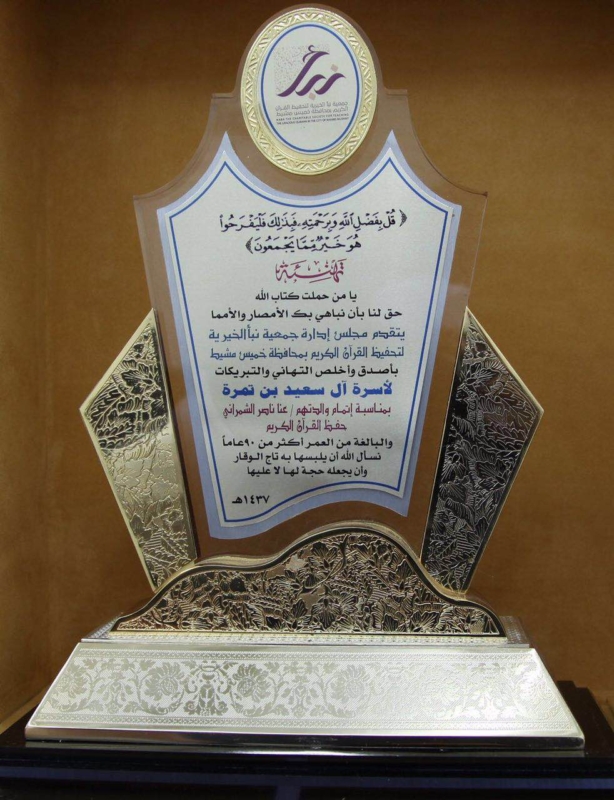 نبأ
جمعية نبأ الخيرية لتحفيظ القرآن
الكريم بمحافظة خميس مشيط
﴿ قُلْ بِفَضْلِ ٱللَّهِ وَبِرَحْمَتِهِۦ فَبِذَٰلِكَ فَلْيَفْرَحُوا۟
هُوَ خَيْرٌ مِّمَّا يَجْمَعُونَ ﴾
تهنئة
يا من حملت كتاب الله
حق لنا بأن نباهي بك الأمصار والأمما
يتقدم مجلس إدارة جمعية نبأ الخيرية
لتحفيظ القرآن الكريم بمحافظة خميس مشيط
بأصدق وأخلص التهاني والتبريكات
لأسرة آل سعيد بن تمرة
بمناسبة إتمام والدتهم / عنا ناصر الشمراني
حفظ القرآن الكريم
والبالغة من العمر أكثر من ٩٠ عاماً
نسأل الله أن يلبسها به تاج الوقار
وأن يجعله حجة لها لا عليها
١٤٣٧هـ